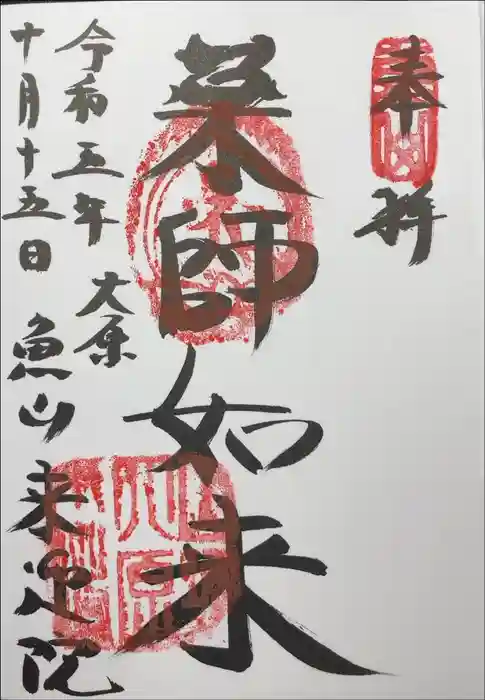 奉拝
薬師如来
令和五年
十月十五日
大原
魚山
来迎院